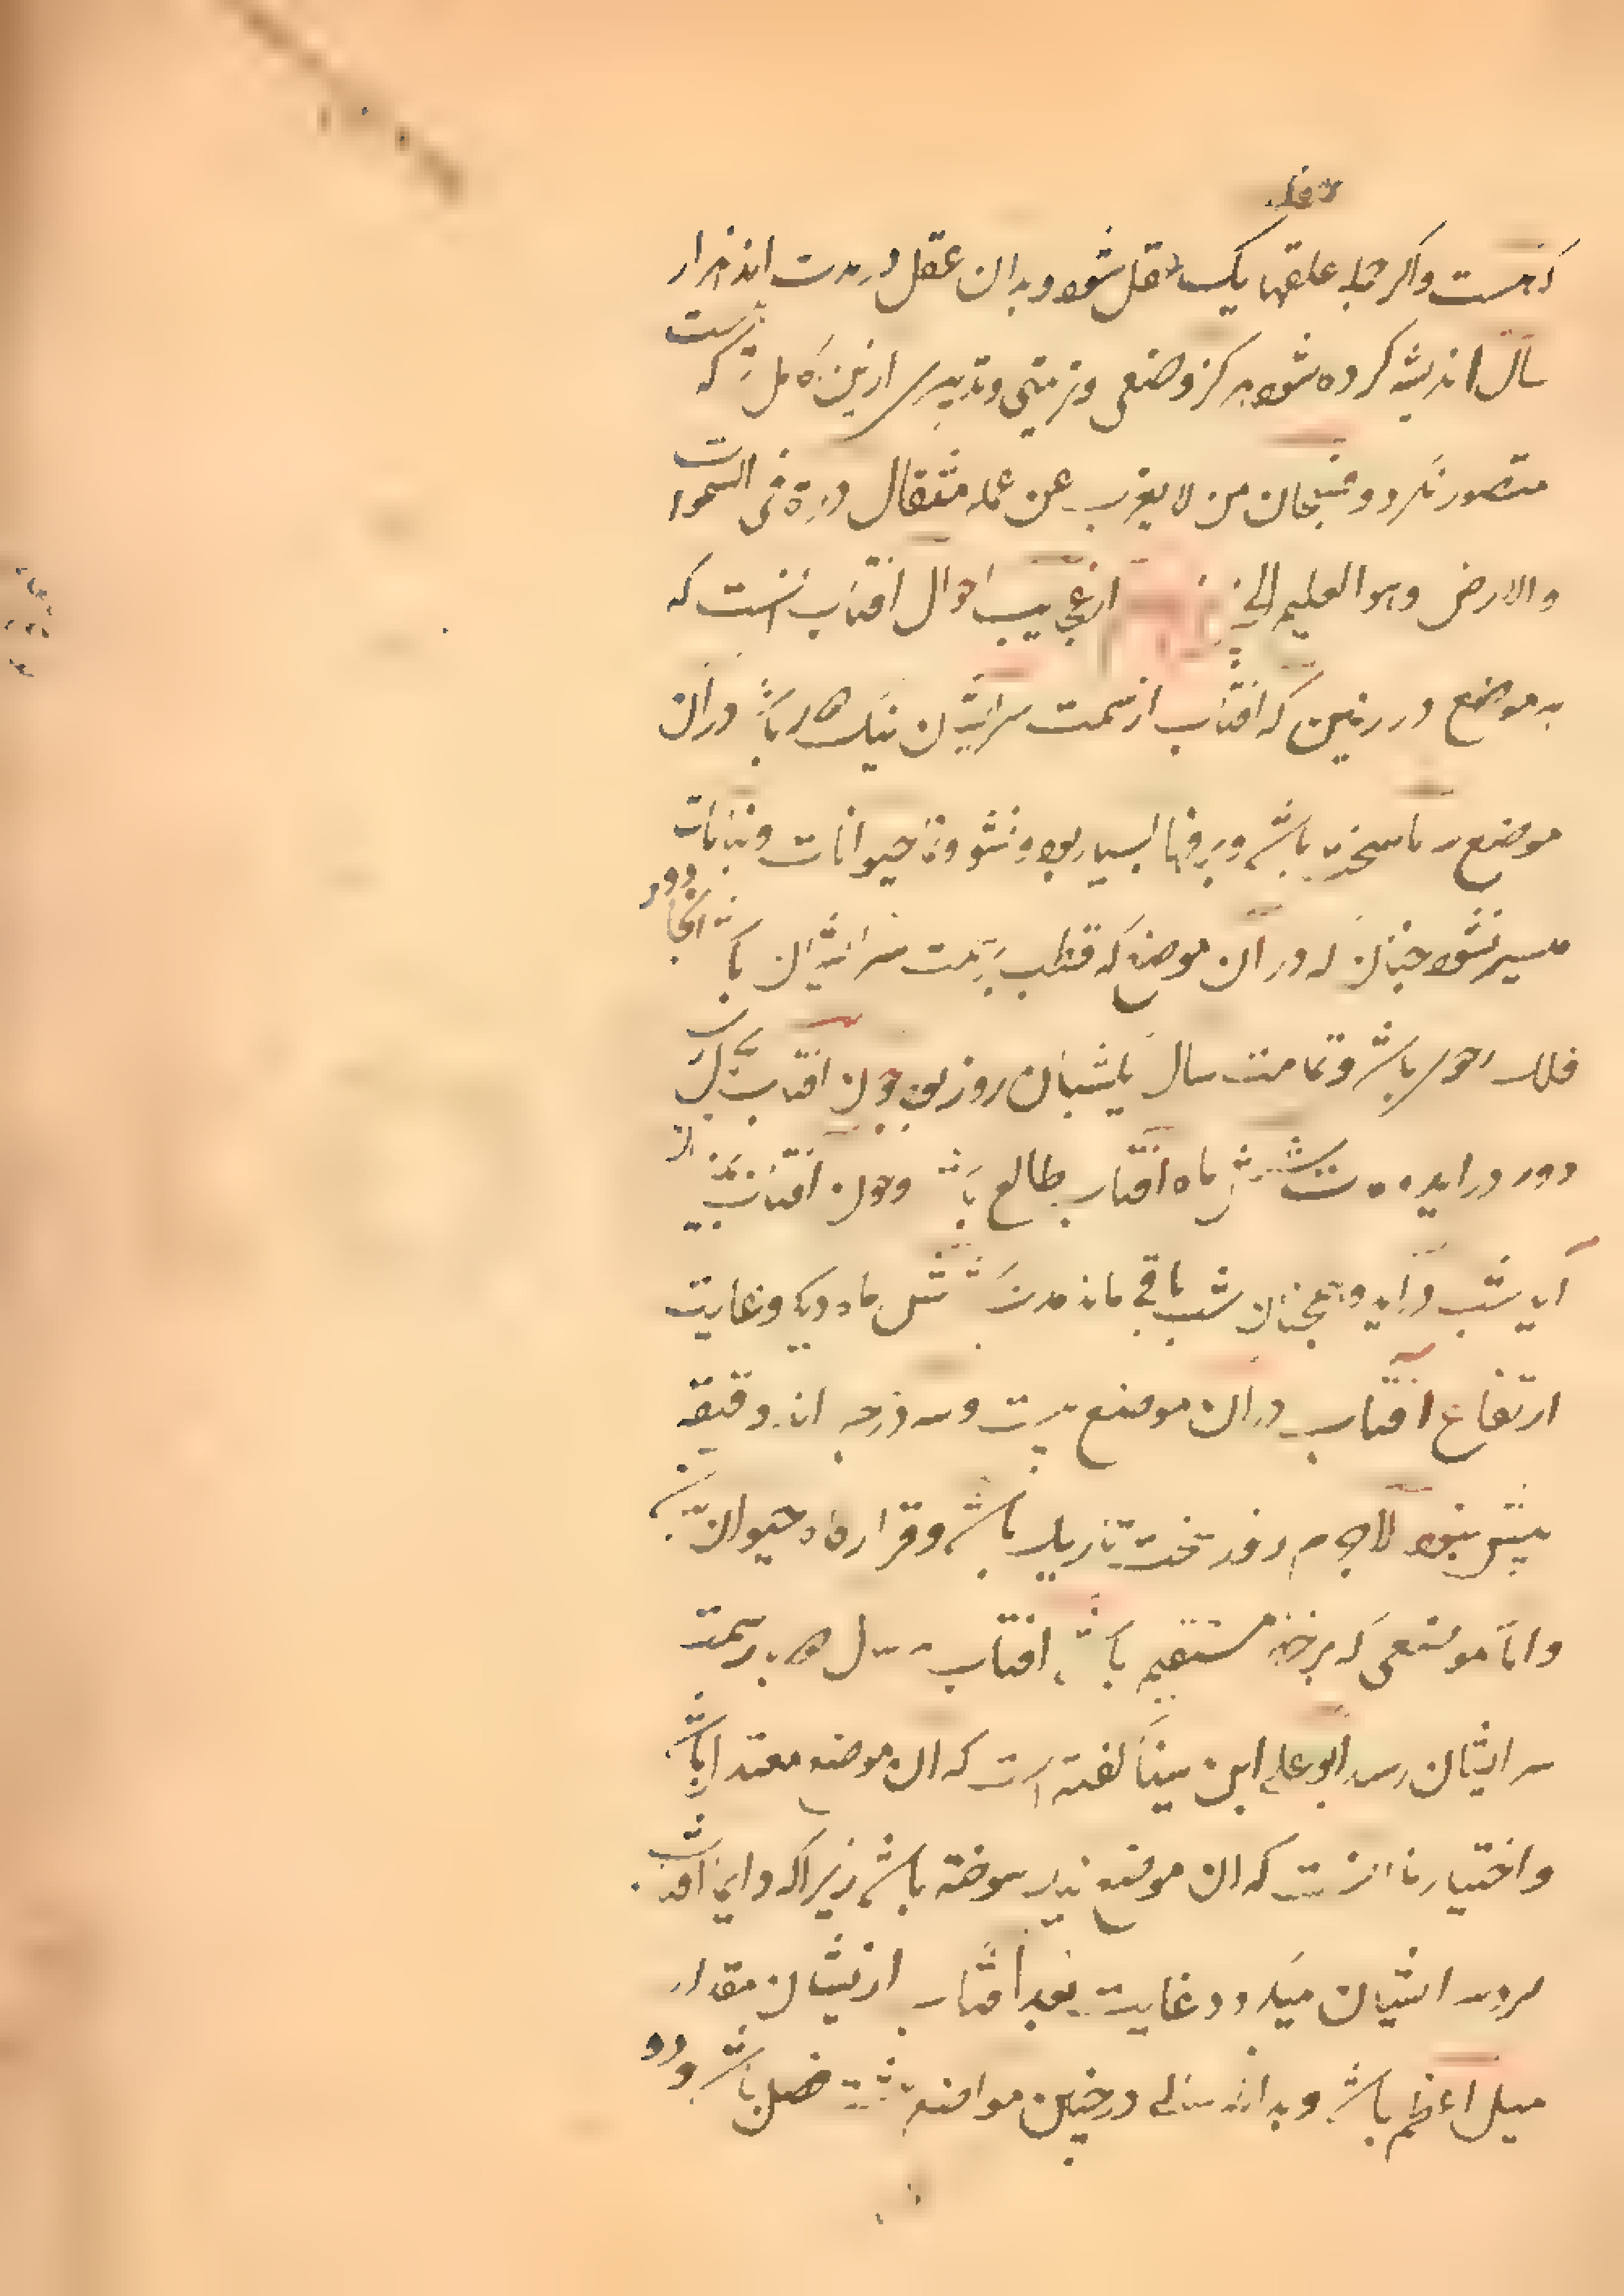 که هست و اگر جمله عقلها یک عقل شود و بدان عقل در مدت اند هزار
سال اندیشه کرده شود هرگز وضعی و ترتیبی و تدبیری ازین کامل تر که هست
متصور نگردد فسبحان من لا یعزب عن علمه مثقال ذرة فی السموات
والارض وهو العلیم از عجایب احوال افتاب انست که
هر موضع در زمین که افتاب از سمت سر ایشان نیک دور باشد در آن
موضع سرما سخت باشد و برفها بسیار بود و نشو و نما حیوانات و نباتات
میسر نشود چنانک در آن موضع که قطب بر سمت سر ایشان باشد انجا دور
فلک رحوی باشد و تمامت سال یک شبان روز بود چون افتاب بیک
دور در اید مدت شش ماه افتاب طالع باشد و چون افتاب
آید شب در آید و همچنان شب باقی ماند مدت شش ماه دیگر و غایت
ارتفاع افتاب در ان موضع بیست و سه درجه اند دقیقه
بیش نبود لاجرم باشد و قرارگاه حیوان
و اما موضعی که بر خط مستقیم باشد افتاب سال دو بار بسمت
سر ایشان رسد ابو علی ابن سینا گفته است که ان موضع معتدل باشد
و اختیار ما انست که ان موضع سوخته باشد زیرا که دایم افتاب
بر سر ایشان میگردد و غایت بعد افتاب از ایشان مقدار
میل اعظم باشد و بدانک سالی در چنین مواضع هشت فصل باشد و دو